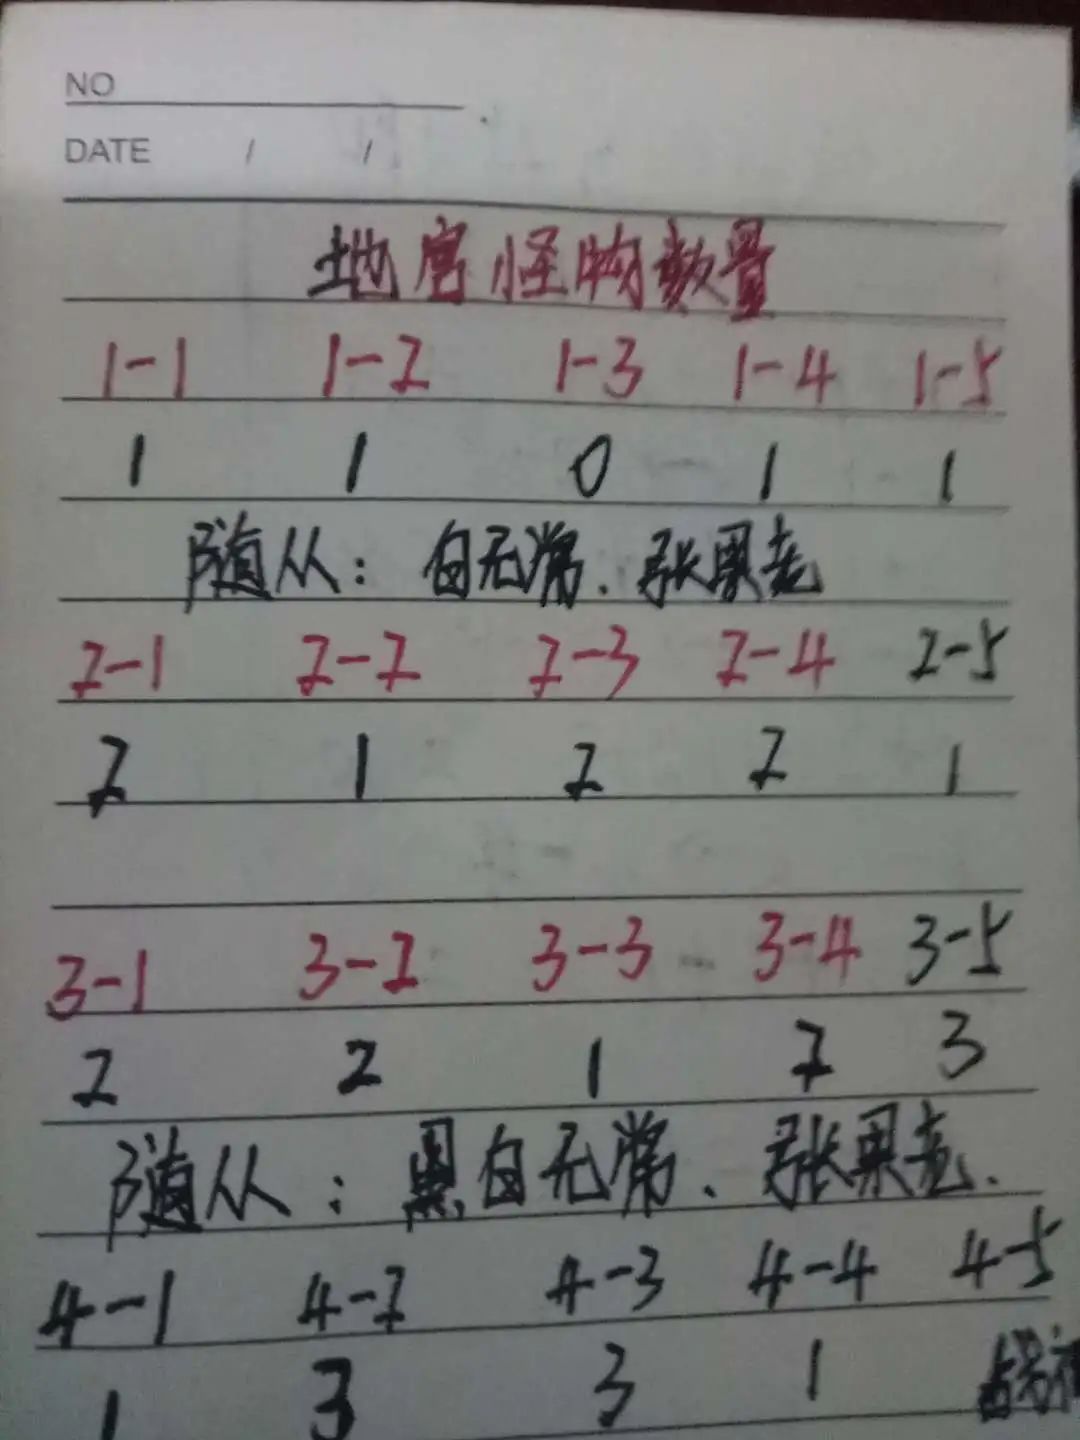 NO
DATE / /
地宫怪物数量
1-1 1-2 1-3 1-4 1-5
1 1 0 1 1
随从：白无常、张果老
2-1 2-2 2-3 2-4 2-5
2 1 2 2 1
3-1 3-2 3-3 3-4 3-5
2 2 1 2 3
随从：黑白无常、张果老.
4-1 4-2 4-3 4-4 4-5
1 3 3 1